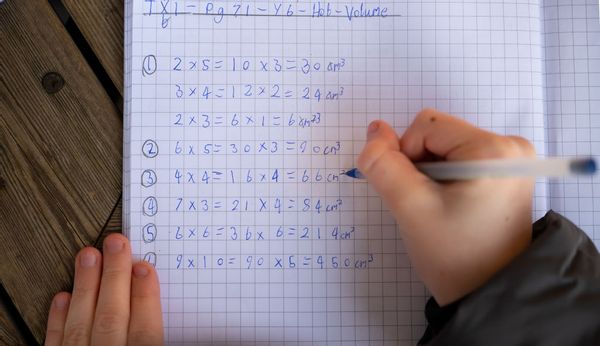 TX1 - Pg 71 - Y6 - Hob - Volume
① 2 × 5 = 10 × 3 = 30 cm³
3 × 4 = 12 × 2 = 24 cm³
2 × 3 = 6 × 1 = 6 cm³
② 6 × 5 = 30 × 3 = 90 cm³
③ 4 × 4 = 16 × 4 = 66 cm³
④ 7 × 3 = 21 × 4 = 84 cm³
⑤ 6 × 6 = 36 × 6 = 214 cm³
9 × 10 = 90 × 5 = 450 cm³